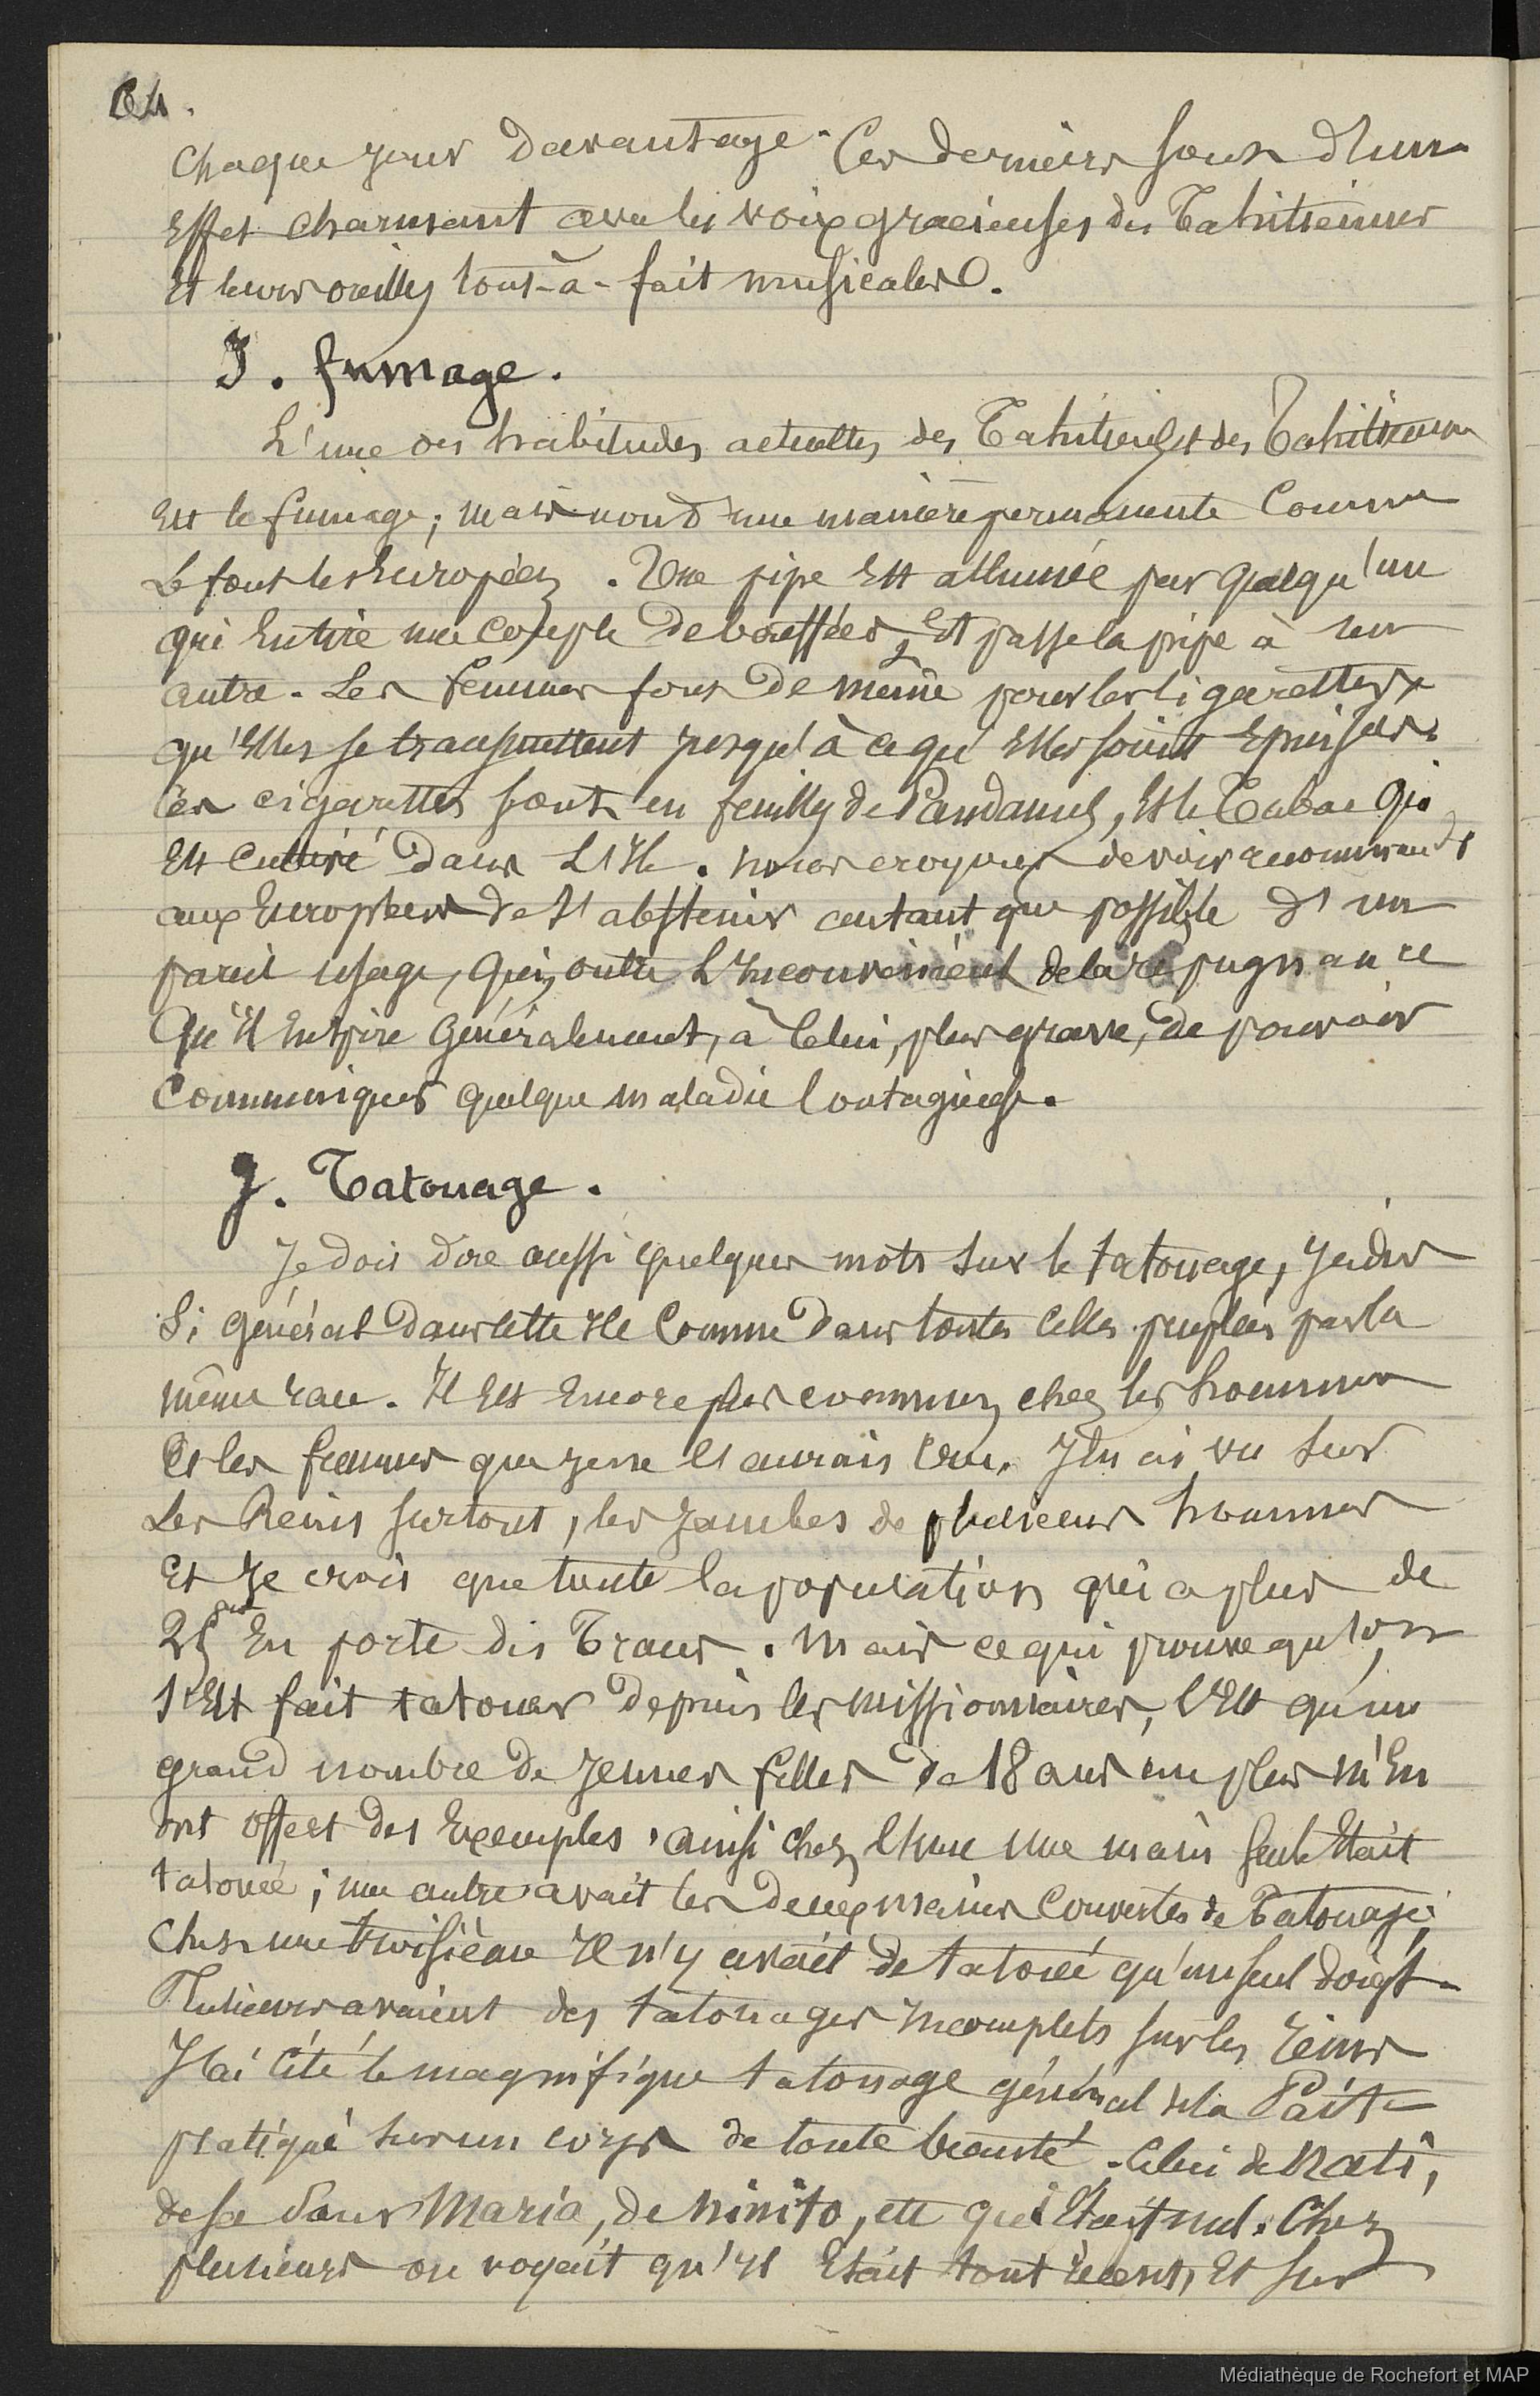 64.
chaque jour davantage. Ces derniers sont d'un
Effet charmant avec les voix gracieuses des Tahitiennes
Et leurs oreilles tout-à-fait musicales.
I. fumage.
L'une des habitudes actuelles des Tahitiens et des Tahitiennes
Est le fumage; mais non d'une manière permanente Comme
Le font les Européens. Une pipe Est allumée par quelqu'un
qui En tire une couple de bouffées, Et passe la pipe à un
autre. Les femmes font de même pour les Cigarettes,
qu'Elles se transmettent jusqu'à ce qu'Elles soient Epuisées.
Ces cigarettes sont en feuilles de Pandanus, Et le Tabac qui
Est cultivé dans L'Ile. nous croyons devoir recommander
aux Européens de s'abstenir autant que possible d'un
pareil usage, qui, outre L'Inconvénient de la répugnance
Qu'Il Inspire Généralement, a Celui, plus grave, de pouvoir
Communiquer quelque maladie Contagieuse.
J. Tatouage.
Je dois dire aussi quelques mots sur le tatouage, jadis
Si général dans cette Ile Comme dans toutes Celles peuplées par la
même race. Il Est Encore plus commun chez les hommes
Et les femmes que je ne l'aurais Cru. J'En ai vu sur
Les Reins surtout, les jambes de plusieurs hommes
Et Je crois que toute la population qui a plus de
25 ans En porte des Traces. Mais ce qui prouve qu'on
s'Est fait tatouer depuis les missionnaires, C'Est qu'un
grand nombre de jeunes filles de 18 ans au plus m'En
ont offert des Exemples. ainsi chez l'Une Une main seule Etait
tatouée; une autre avait les deux mains Couvertes de Tatouage;
Chez une troisième Il n'y avait de tatoué qu'un seul doigt.
Plusieurs avaient des tatouages Incomplets sur les reins
J'ai Cité le magnifique tatouage général de la Paît
pratiqué sur un corps de toute beauté. Celui de
de sa Sœur Maria, de Ninito, etc qui Etait nud. Chez
plusieurs on voyait qu'Il Etait tout récent, Et sur
Médiathèque de Rochefort et MAP